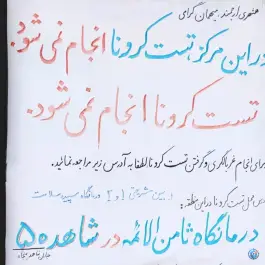 همشهری ارجمند، میهمان گرامی
در این مرکز تست کرونا انجام نمی شود.
تست کرونا انجام نمی شود.
برای انجام غربالگری و گرفتن تست کرونا لطفا به آدرس زیر مراجعه نمائید.
محل تست کرونا در این منطقه:
درمانگاه ثامن الائمه در شاهد ۵۰